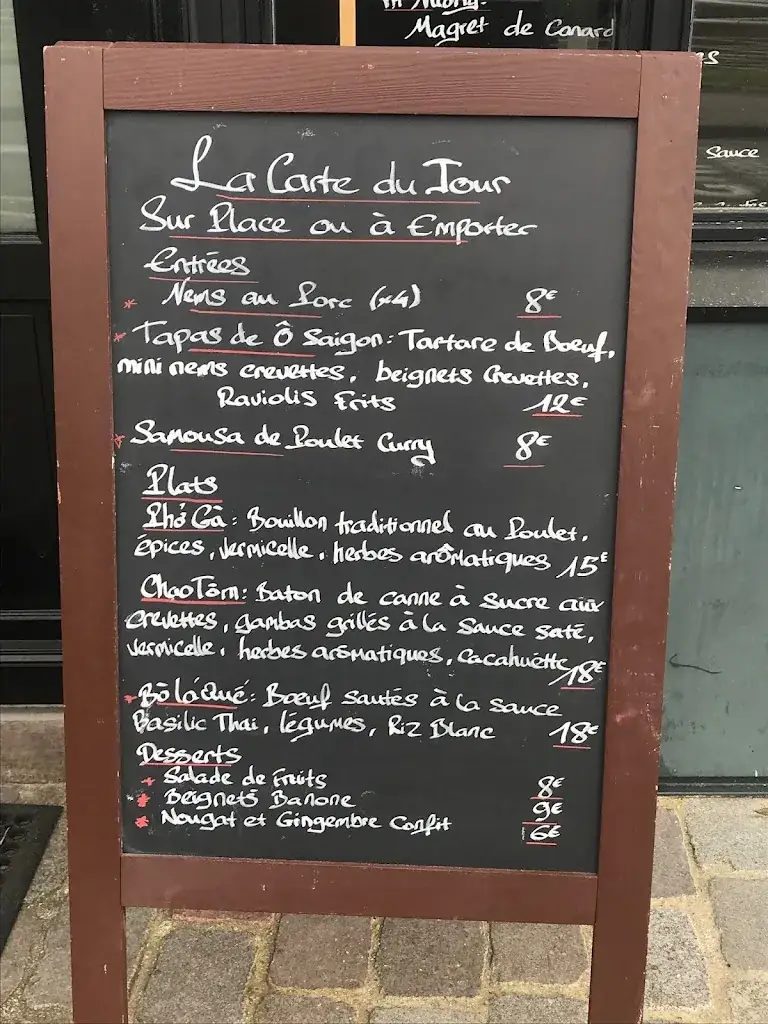 Magret de Canard
Sauce
La Carte du Jour
Sur Place ou à Emporter
Entrées
* Nems au Porc (x4) 8€
* Tapas de Ô Saigon: Tartare de Bœuf,
mini nems crevettes, beignets Crevettes,
Raviolis Frits 12€
* Samousa de Poulet Curry 8€
Plats
Phở Gà: Bouillon traditionnel au Poulet,
épices, vermicelle, herbes arômatiques 15€
Chao Tôm: Baton de canne à sucre aux
crevettes, gambas grillés à la sauce saté,
vermicelle, herbes arômatiques, cacahuète 18€
* Bò lá Qué: Bœuf sautés à la sauce
Basilic Thai, légumes, Riz Blanc 18€
Desserts
* Salade de Fruits 8€
* Beignets Banane 9€
* Nougat et Gingembre Confit 6€